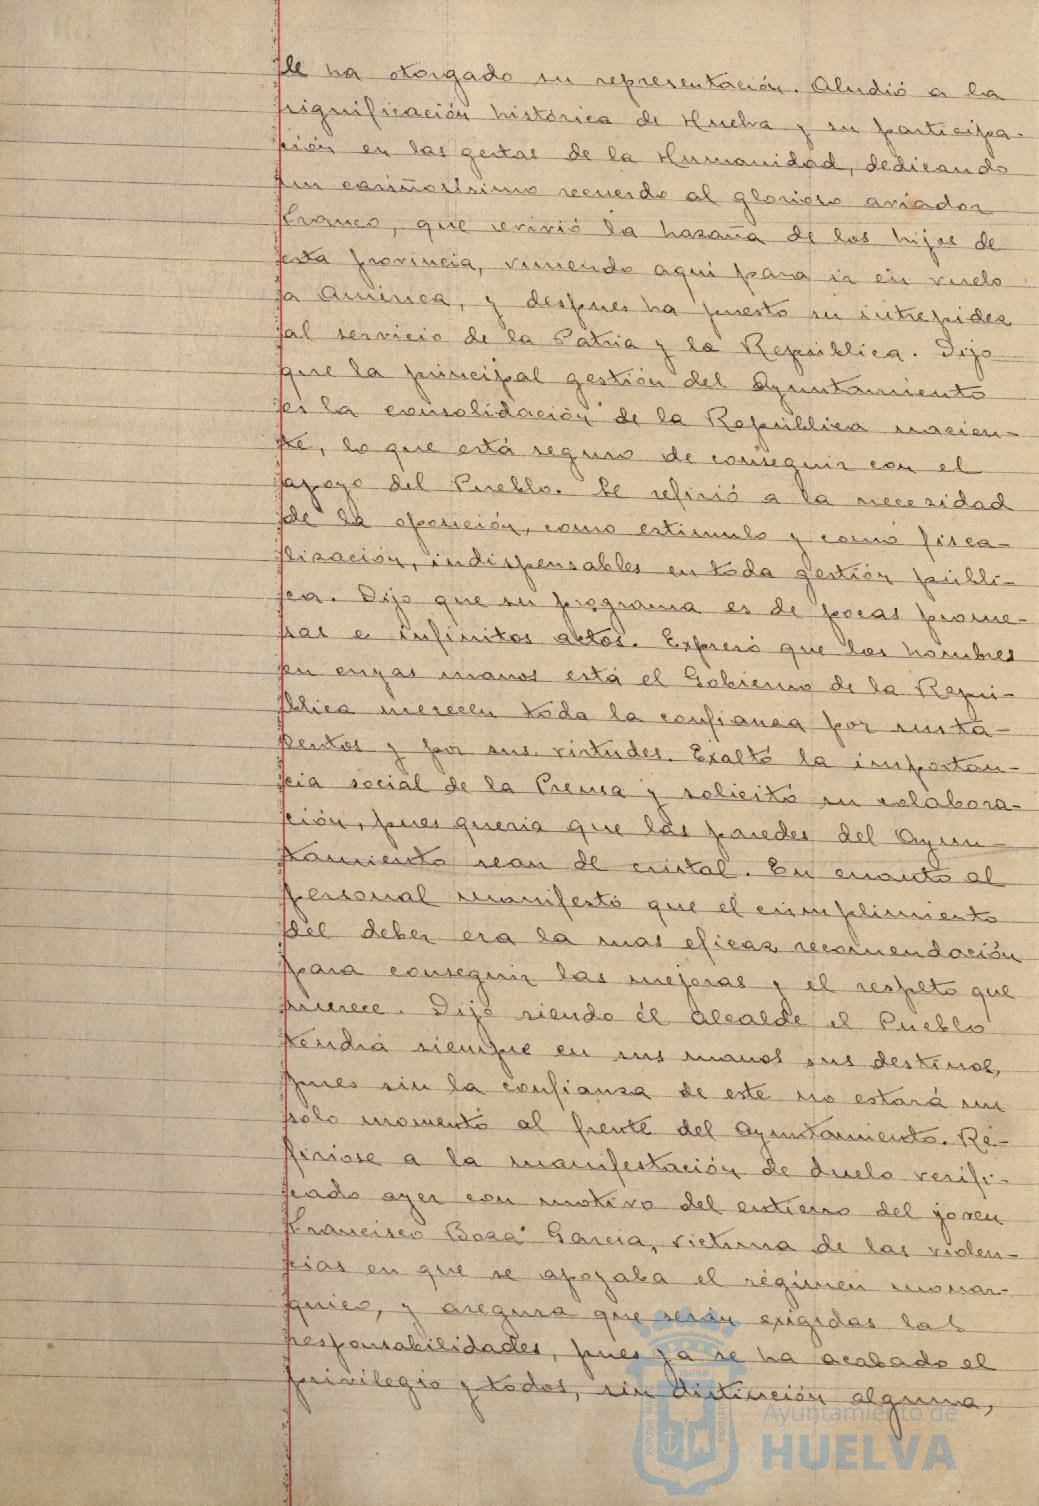 le ha otorgado su representación. Aludió a la
significación histórica de Huelva y su participa-
ción en las gestas de la Humanidad, dedicando
un cariñosísimo recuerdo al glorioso aviador
Franco, que revivió la hazaña de los hijos de
esta provincia, viniendo aqui para ir en vuelo
a América, y despues ha puesto su intrepidez
al servicio de la Patria y la República. Dijo
que la principal gestión del Ayuntamiento
es la consolidación de la República nacien-
te, lo que está seguro de conseguir con el
apoyo del Pueblo. Se refirió a la necesidad
de la oposición, como estimulo y como fisca-
lización, indispensables en toda gestión públi-
ca. Dijo que su programa es de pocas prome-
sas e infinitos actos. Expresó que los hombres
en cuyas manos está el Gobierno de la Repú-
blica merecen toda la confianza por sus ta-
lentos y por sus virtudes. Exaltó la importan-
cia social de la Prensa y solicitó su colabora-
ción, pues queria que las paredes del Ayun-
tamiento sean de cristal. En cuanto al
personal manifestó que el cumplimiento
del deber era la mas eficaz recomendación
para conseguir las mejoras y el respeto que
merece. Dijo siendo él Alcalde el Pueblo
tendrá siempre en sus manos sus destinos,
pues sin la confianza de este no estará un
sólo momento al frente del Ayuntamiento. Re-
firiose a la manifestación de duelo verifi-
cado ayer con motivo del entierro del joven
Francisco Boza Garcia, victima de las violen-
cias en que se apoyaba el régimen monar-
quico, y asegura que serán exigidas las
responsabilidades, pues ya se ha acabado el
privilegio y todos, sin distinción alguna,
Ayuntamiento de
HUELVA